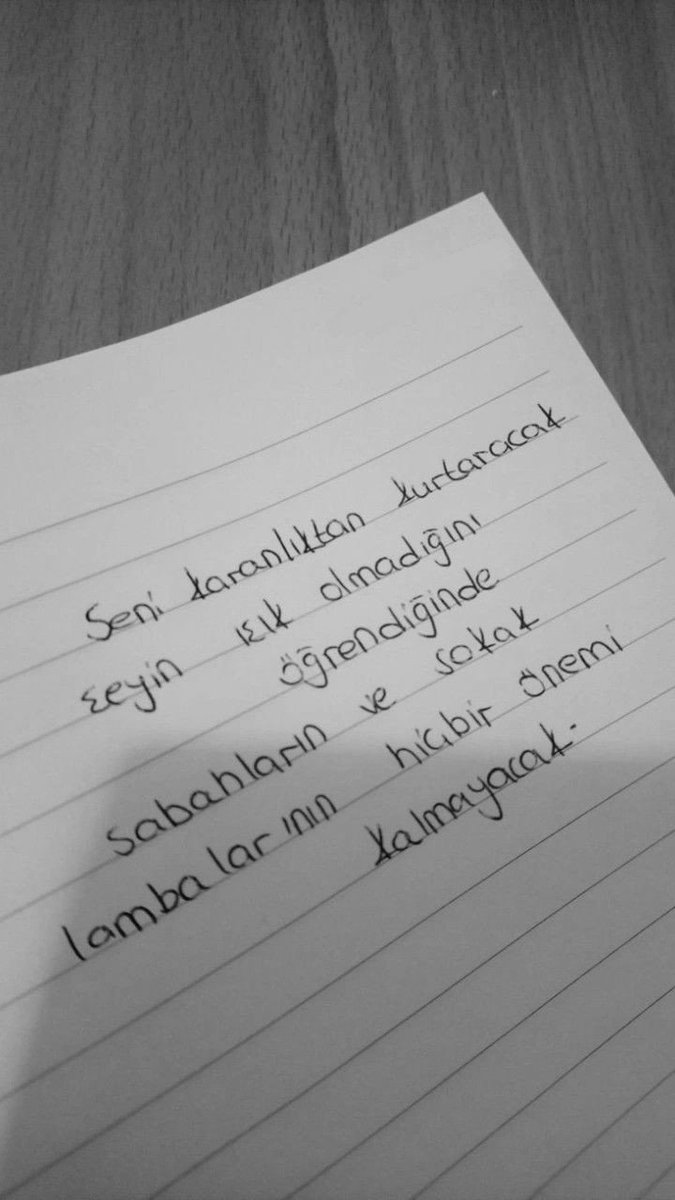 Seni karanlıktan kurtaracak
şeyin ışık olmadığını
öğrendiğinde
sabahların ve sokak
lambalar'ının hiçbir önemi
kalmayacak.